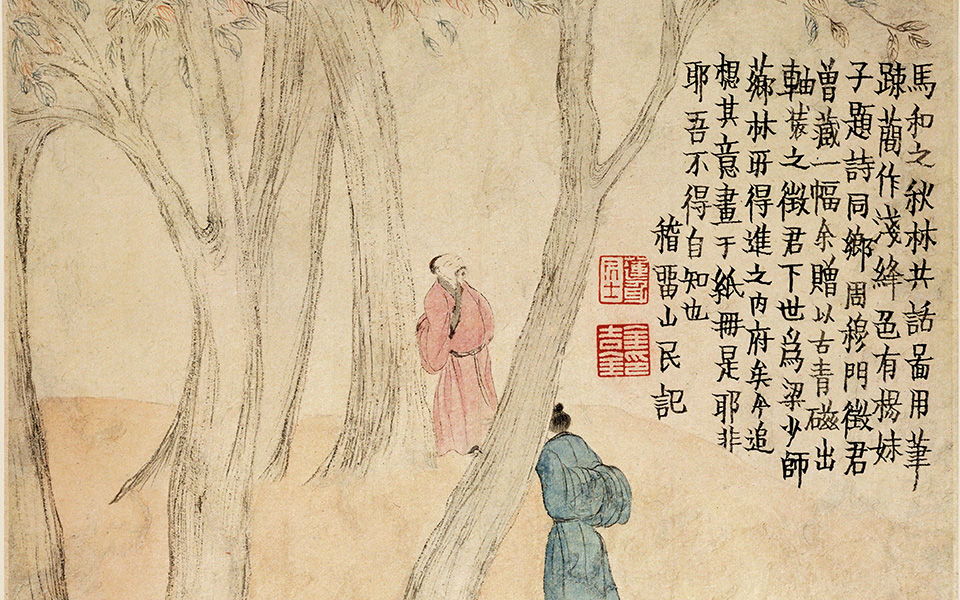 馬和之秋林共話啚用筆
踈蕳作淺絳色有楊妹
子題詩同鄉周穆門徵君
曽藏一幅余贈以古青磁出
軸裝之徵君下世爲梁少師
薌林所得進之内府矣今追
想其意畫于紙冊是耶非
耶吾不得自知也
稽畱山民記
蓮身居士
金吉金印